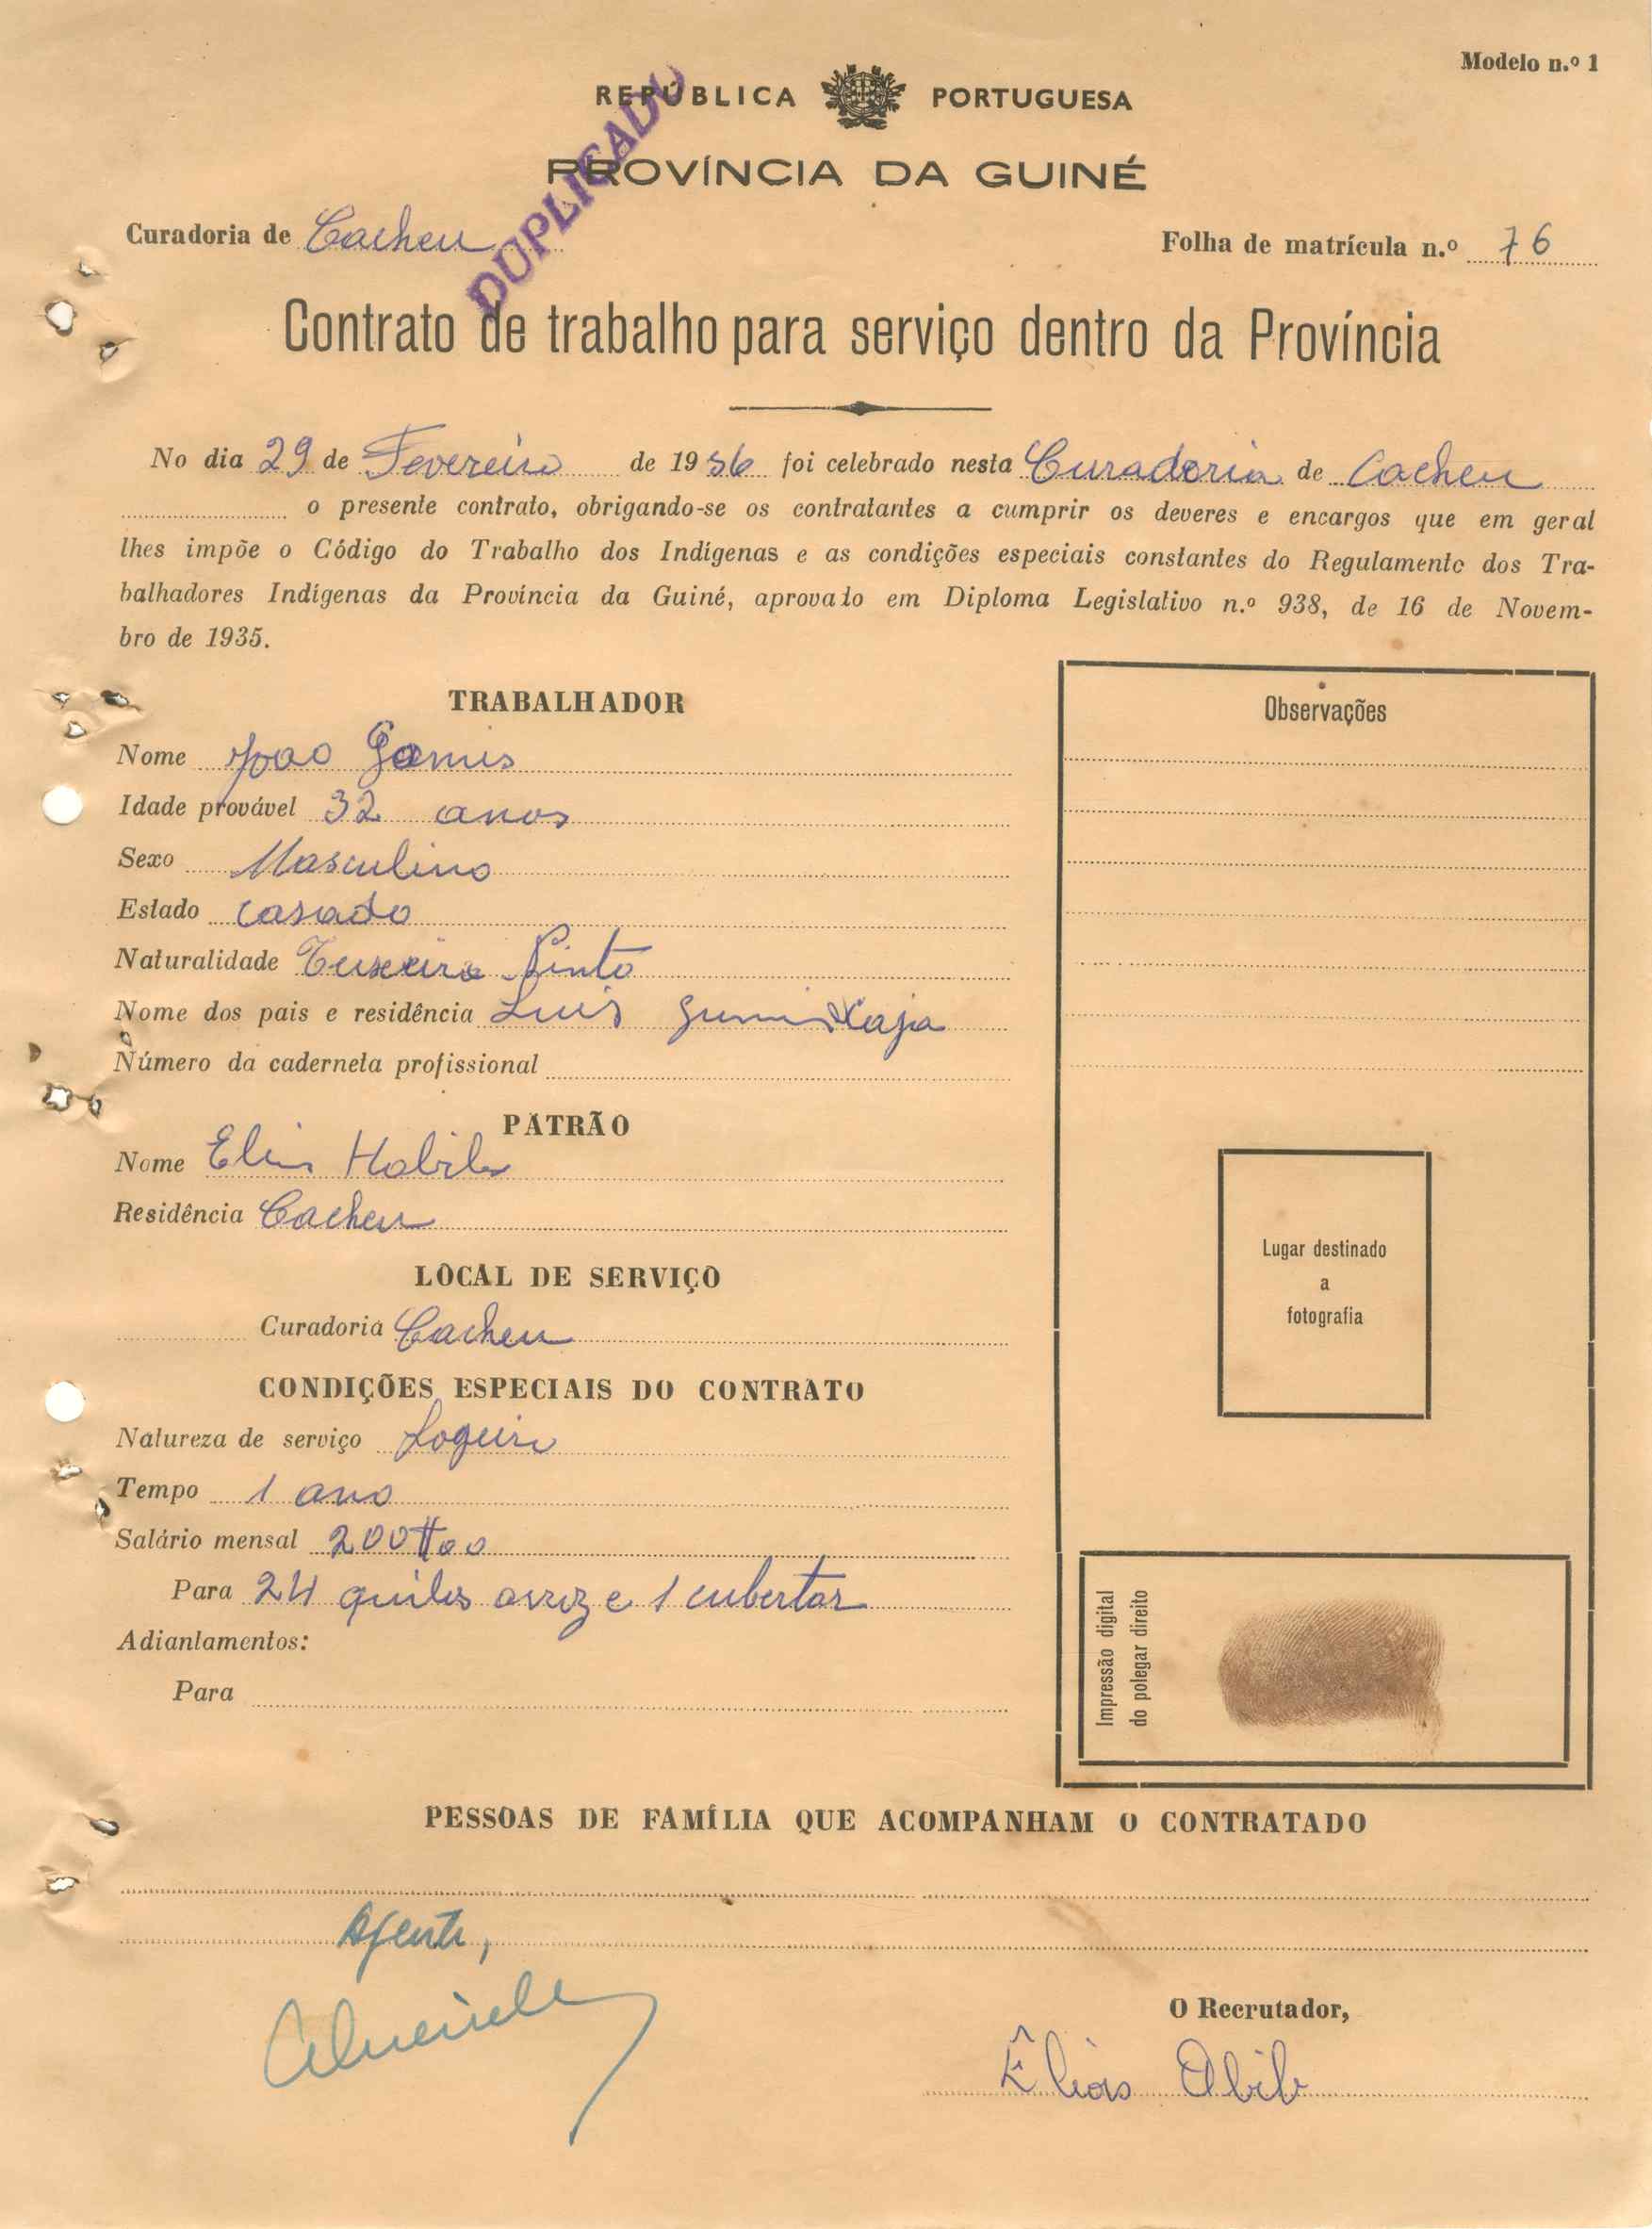 Modelo n.º 1
REPÚBLICA PORTUGUESA
DUPLICADO
PROVÍNCIA DA GUINÉ
Curadoria de Cacheu
Folha de matrícula n.º 76
Contrato de trabalho para serviço dentro da Província
No dia 29 de Fevereiro de 1956 foi celebrado nesta Curadoria de Cacheu
o presente contrato, obrigando-se os contratantes a cumprir os deveres e encargos que em geral
lhes impõe o Código do Trabalho dos Indígenas e as condições especiais constantes do Regulamento dos Tra-
balhadores Indígenas da Província da Guiné, aprovado em Diploma Legislativo n.º 938, de 16 de Novem-
bro de 1935.
TRABALHADOR
Nome Joao Gomis
Idade provável 32 anos
Sexo Masculino
Estado casado
Naturalidade Teixeira Pinto
Nome dos pais e residência Luis
Número da caderneta profissional
PATRÃO
Nome Elias Habib
Residência Cacheu
LOCAL DE SERVIÇO
Curadoria Cacheu
CONDIÇÕES ESPECIAIS DO CONTRATO
Natureza de serviço
Tempo 1 ano
Salário mensal 200$00
Para 24 quilos arroz e 1 cubertar
Adiantamentos:
Para
Observações
Lugar destinado
a
fotografia
Impressão digital
do polegar direito
PESSOAS DE FAMÍLIA QUE ACOMPANHAM O CONTRATADO
Agente,
Almeida
O Recrutador,
Êlias Abib